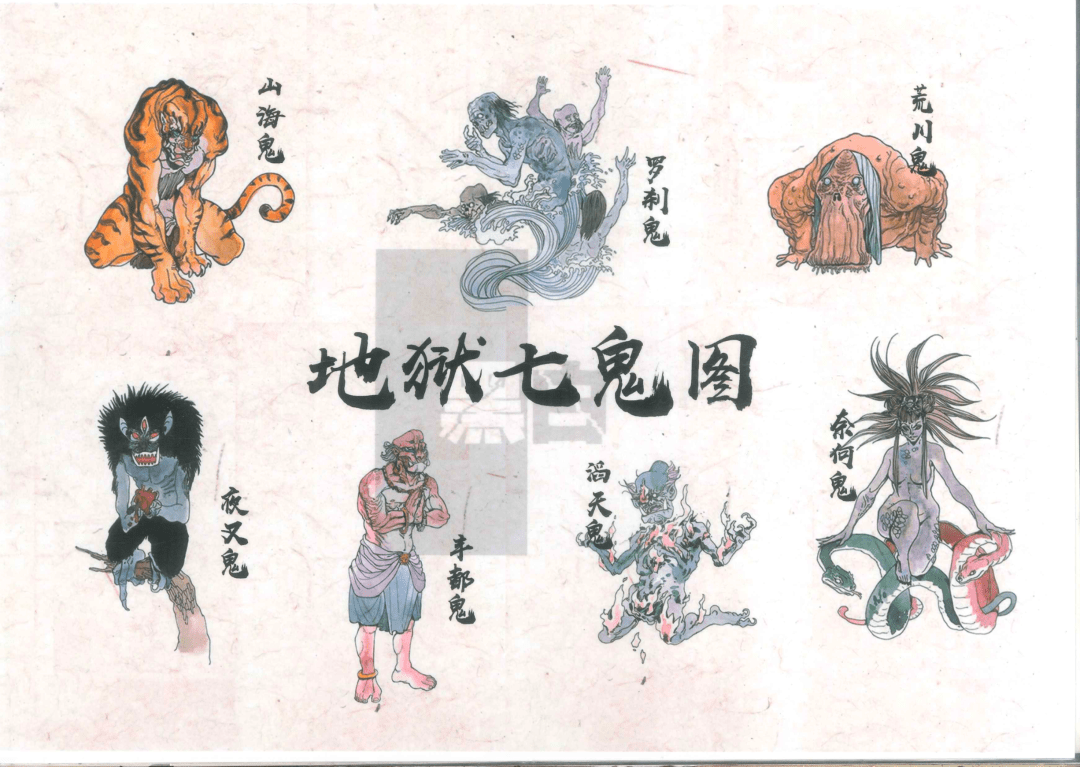 山海鬼
罗刹鬼
荒川鬼
地狱七鬼图
夜叉鬼
丰都鬼
滔天鬼
奈何鬼